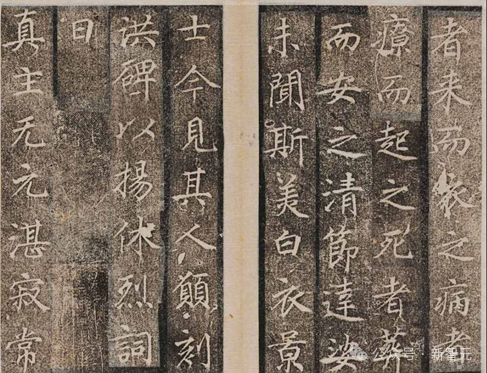 者来而衣之病者
療而起之死者葬
而安之清節達娑
未聞斯美白衣景
士今見其人願刻
洪碑以揚休烈詞
曰
真主无元湛寂常
公众号